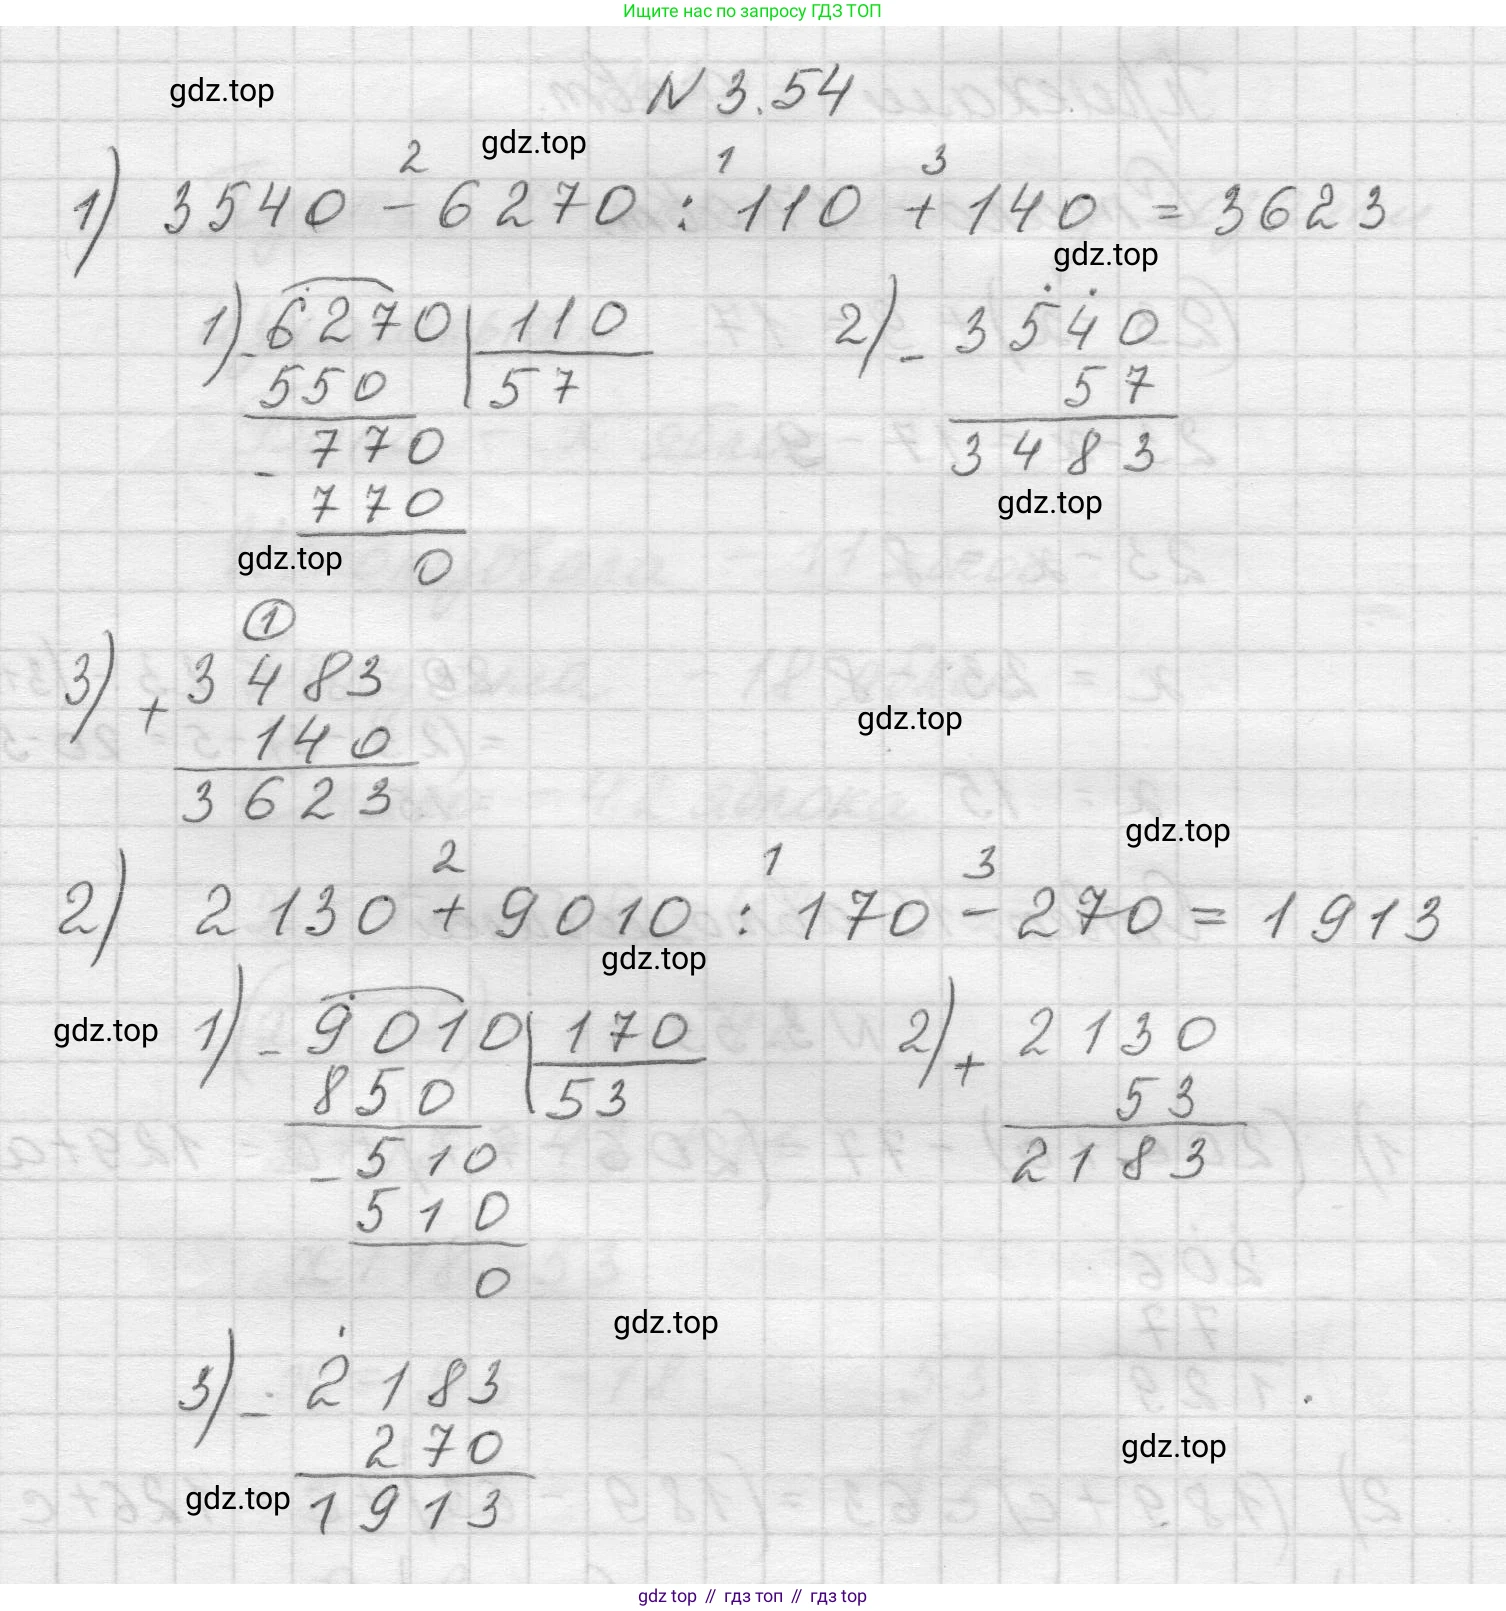 Ищите нас по запросу ГДЗ ТОП
gdz.top
N 3.54
gdz.top
2 1 3
1) 3540 - 6270 : 110 + 140 = 3623
gdz.top
1) - 6270 110 2) - 3540
550 57 57
- 770 3483
770 gdz.top
gdz.top 0
1
3) + 3483
gdz.top
140
3623
gdz.top
2 1 3
2) 2130 + 9010 : 170 - 270 = 1913
gdz.top
gdz.top 1) - 9010 170 2) + 2130
850 53 53
- 510 2183
510
0
gdz.top
3) - 2183
270
gdz.top
gdz.top 1913
gdz top // гдз топ // гдз top